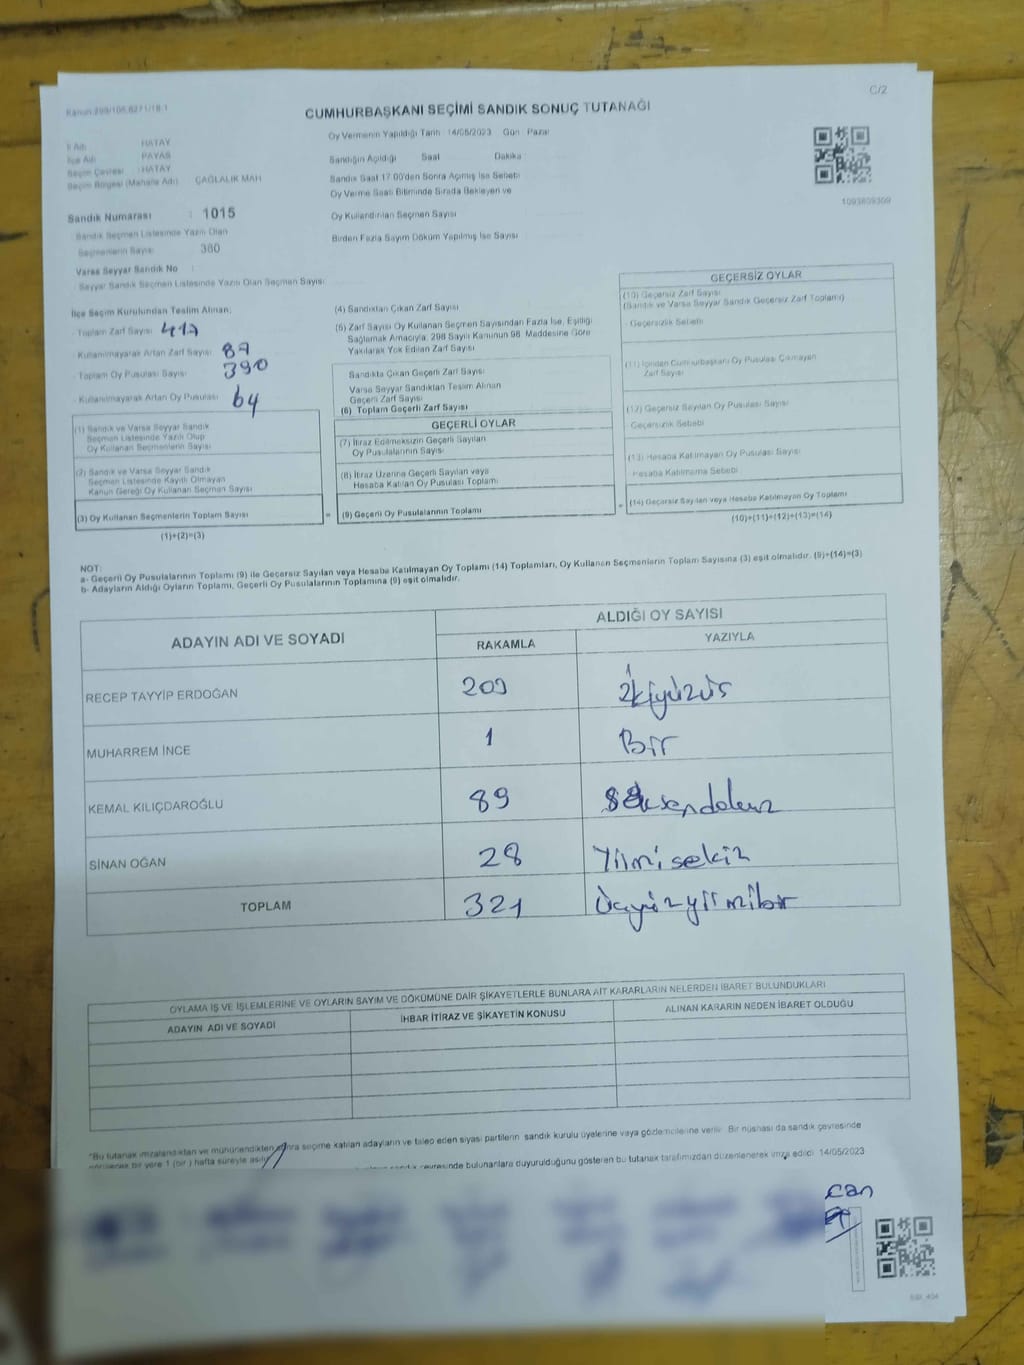 C/2
Kanun:298/106,6271/18-1
CUMHURBAŞKANI SEÇİMİ SANDIK SONUÇ TUTANAĞI
Oy Vermenin Yapıldığı Tarih 14/05/2023 Gün Pazar
İl Adı HATAY
İlçe Adı PAYAS
Seçim Çevresi : HATAY
Seçim Bölgesi (Mahalle Adı) ÇAĞLALIK MAH
Sandığın Açıldığı Saat Dakika
Sandık Saat 17.00'den Sonra Açılmış İse Sebebi
Oy Verme Saati Bitiminde Sırada Bekleyen ve
Oy Kullandırılan Seçmen Sayısı
Birden Fazla Sayım Döküm Yapılmış İse Sayısı
1093809309
Sandık Numarası : 1015
Sandık Seçmen Listesinde Yazılı Olan
Seçmenlerin Sayısı 380
Varsa Seyyar Sandık No :
Seyyar Sandık Seçmen Listesinde Yazılı Olan Seçmen Sayısı:
İlçe Seçim Kurulundan Teslim Alınan;
- Toplam Zarf Sayısı 417
- Kullanılmayarak Artan Zarf Sayısı 87
- Toplam Oy Pusulası Sayısı 390
- Kullanılmayarak Artan Oy Pusulası 64
(1) Sandık ve Varsa Seyyar Sandık
Seçmen Listesinde Yazılı Olup
Oy Kullanan Seçmenlerin Sayısı
(2) Sandık ve Varsa Seyyar Sandık
Seçmen Listesinde Kayıtlı Olmayan
Kanun Gereği Oy Kullanan Seçmen Sayısı
(3) Oy Kullanan Seçmenlerin Toplam Sayısı
(1)+(2)=(3)
(4) Sandıktan Çıkan Zarf Sayısı
(5) Zarf Sayısı Oy Kullanan Seçmen Sayısından Fazla İse, Eşitliği
Sağlamak Amacıyla, 298 Sayılı Kanunun 98. Maddesine Göre
Yakılarak Yok Edilen Zarf Sayısı
Sandıkta Çıkan Geçerli Zarf Sayısı
Varsa Seyyar Sandıktan Teslim Alınan
Geçerli Zarf Sayısı
(6) Toplam Geçerli Zarf Sayısı
GEÇERLİ OYLAR
(7) İtiraz Edilmeksizin Geçerli Sayılan
Oy Pusulalarının Sayısı
(8) İtiraz Üzerine Geçerli Sayılan veya
Hesaba Katılan Oy Pusulası Toplamı
= (9) Geçerli Oy Pusulalarının Toplamı
GEÇERSİZ OYLAR
(10) Geçersiz Zarf Sayısı
(Sandık ve Varsa Seyyar Sandık Geçersiz Zarf Toplamı)
- Geçersizlik Sebebi
(11) İçinden Cumhurbaşkanı Oy Pusulası Çıkmayan
Zarf Sayısı
(12) Geçersiz Sayılan Oy Pusulası Sayısı
- Geçersizlik Sebebi
(13) Hesaba Katılmayan Oy Pusulası Sayısı
- Hesaba Katılmama Sebebi
(14) Geçersiz Sayılan veya Hesaba Katılmayan Oy Toplamı
(10)+(11)+(12)+(13)=(14)
NOT:
a- Geçerli Oy Pusulalarının Toplamı (9) ile Geçersiz Sayılan veya Hesaba Katılmayan Oy Toplamı (14) Toplamları, Oy Kullanan Seçmenlerin Toplam Sayısına (3) eşit olmalıdır. (9)+(14)=(3)
b- Adayların Aldığı Oyların Toplamı, Geçerli Oy Pusulalarının Toplamına (9) eşit olmalıdır.
ADAYIN ADI VE SOYADI ALDIĞI OY SAYISI
RAKAMLA YAZIYLA
RECEP TAYYİP ERDOĞAN 203 İkiyüzüç
MUHARREM İNCE 1 Bir
KEMAL KILIÇDAROĞLU 89 Seksendokuz
SİNAN OĞAN 28 Yirmisekiz
TOPLAM 321 Üçyüzyirmibir
OYLAMA İŞ VE İŞLEMLERİNE VE OYLARIN SAYIM VE DÖKÜMÜNE DAİR ŞİKAYETLERLE BUNLARA AİT KARARLARIN NELERDEN İBARET BULUNDUKLARI
ADAYIN ADI VE SOYADI İHBAR İTİRAZ VE ŞİKAYETİN KONUSU ALINAN KARARIN NEDEN İBARET OLDUĞU
"Bu tutanak imzalandıktan ve mühürlendikten sonra seçime katılan adayların ve talep eden siyasi partilerin sandık kurulu üyelerine veya gözlemcilerine verilir. Bir nüshası da sandık çevresinde
görülecek bir yere 1 (bir) hafta süreyle asılır.
çevresinde bulunanlara duyurulduğunu gösteren bu tutanak tarafımızdan düzenlenerek imza edildi. 14/05/2023
can